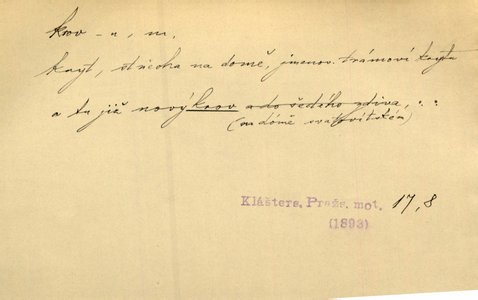 krov -u, m.
kryt, střecha na domě, jmenov. trámoví krytu
a tu již nový krov a do šedého zdiva, . .
(na dómě svatovítském)
Klášters. Pražs. mot. 17,8
(1893)